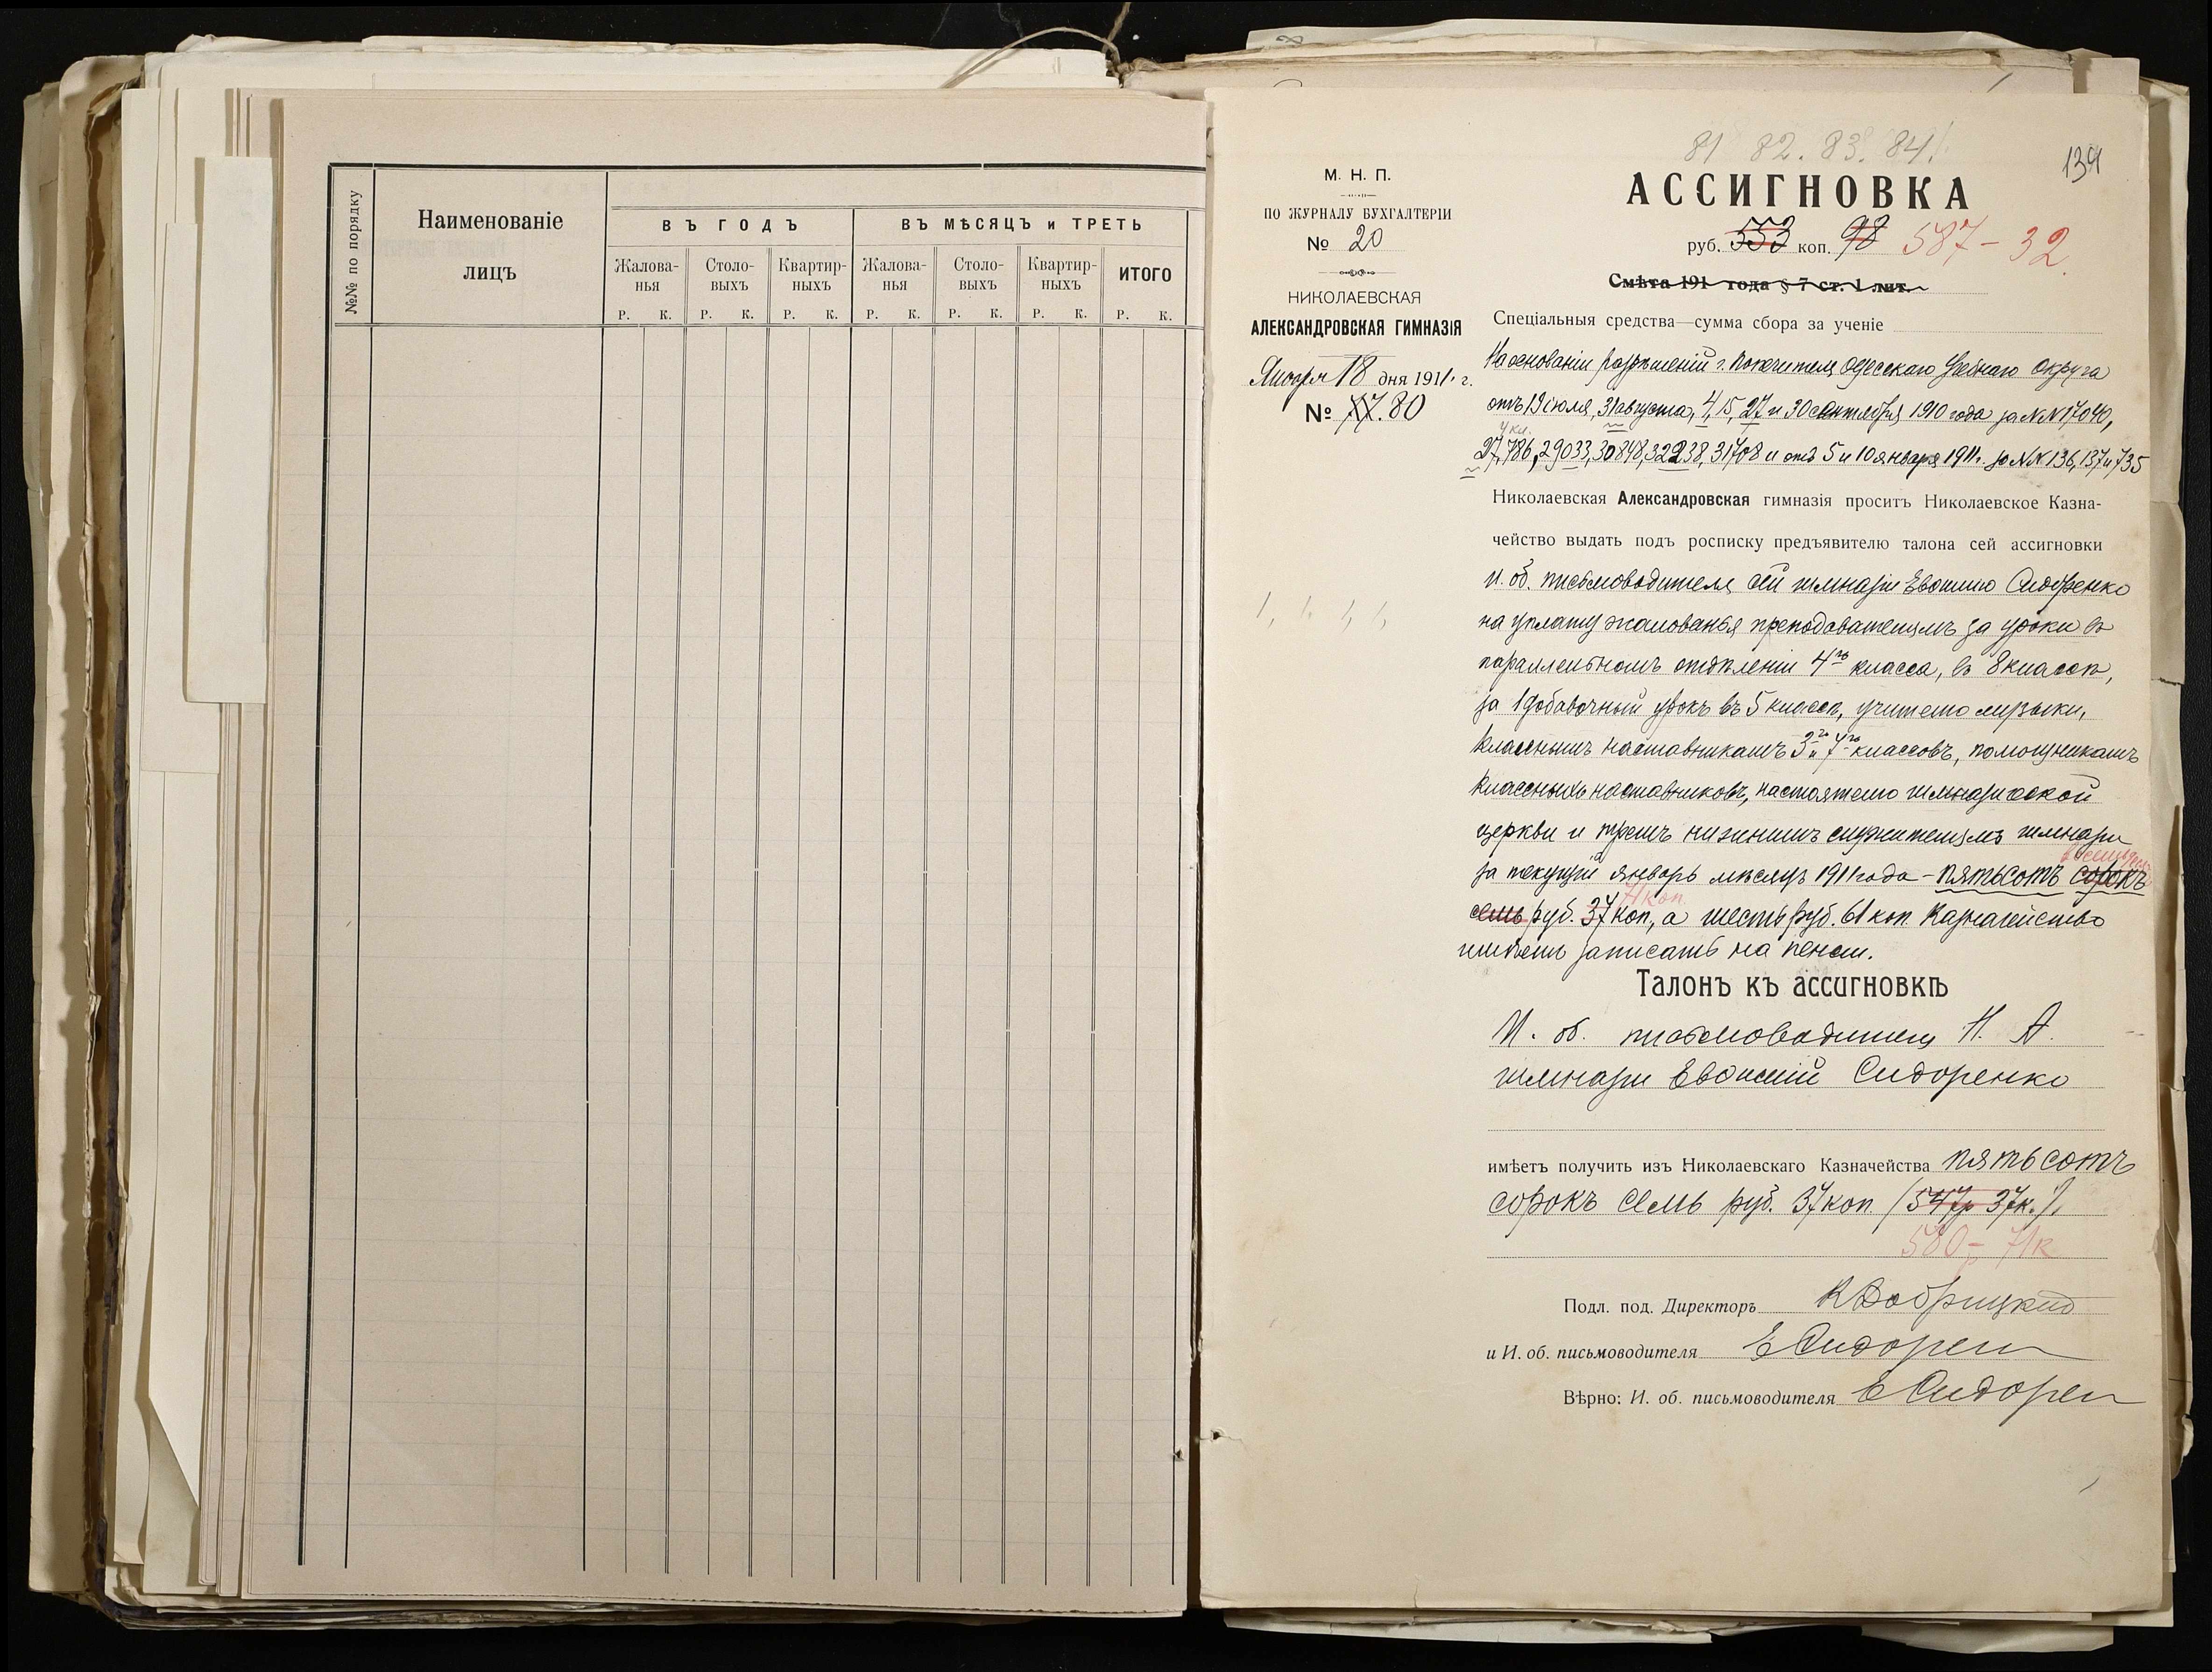 №№ по порядку
Наименованіе
лицъ
ВЪ ГОДЪ
ВЪ МѢСЯЦЪ и ТРЕТЬ
Жалова-
нья
Столо-
выхъ
Квартир-
ныхъ
Жалова-
нья
Столо-
выхъ
Квартир-
ныхъ
ИТОГО
Р. К. Р. К. Р. К. Р. К. Р. К. Р. К. Р. К.
81 82. 83. 84.
134
М. Н. П.
ПО ЖУРНАЛУ БУХГАЛТЕРІИ
№ 20
НИКОЛАЕВСКАЯ
АЛЕКСАНДРОВСКАЯ ГИМНАЗІЯ
Января 18 дня 1911 г.
№ 77. 80
АССИГНОВКА
руб. 553 коп. 98 587 - 32
Смѣта 191 года § 7 ст. 1 лит.
Спеціальныя средства—сумма сбора за ученіе
На основаніи разрѣшеній г. Попечителя Одесскаго Учебнаго Округа
отъ 19 іюля, 31 августа, 4, 15, 27 и 30 сентября 1910 года за №№ 17040,
27,786, 29033, 30848, 32238, 31708 и отъ 5 и 10 января 1911 г. за №№ 136, 137 и 735
Николаевская Александровская гимназія проситъ Николаевское Казна-
чейство выдать подъ росписку предъявителю талона сей ассигновки
И. об. письмоводителя сей гимназіи Сидоренко
на уплату жалованья преподавателямъ за уроки въ
параллельномъ отдѣленіи 4го класса, въ 8 классѣ,
за 1 добавочный урокъ въ 5 классѣ, учителю музыки,
класснымъ наставникамъ 3го и 7го классовъ, помощникамъ
классныхъ наставниковъ, настоятелю гимназической
церкви и тремъ низшимъ служителямъ гимназіи
за текущій январь мѣсяцъ 1911 года - пятьсотъ сорокъ
71 коп
семь руб. 37 коп, а шесть руб. 61 коп. Казначейство
имѣетъ записать на пенсіи.
Талонъ къ ассигновкѣ
И. об. письмоводителя Н. А.
гимназіи Сидоренко
имѣетъ получить изъ Николаевскаго Казначейства пятьсотъ
сорокъ семь руб. 37 коп (547р 37к.).
580р - 71к
Подл. под. Директоръ К Добрицкій
и И. об. письмоводителя Е Сидорен
Вѣрно: И. об. письмоводителя Е Сидорен